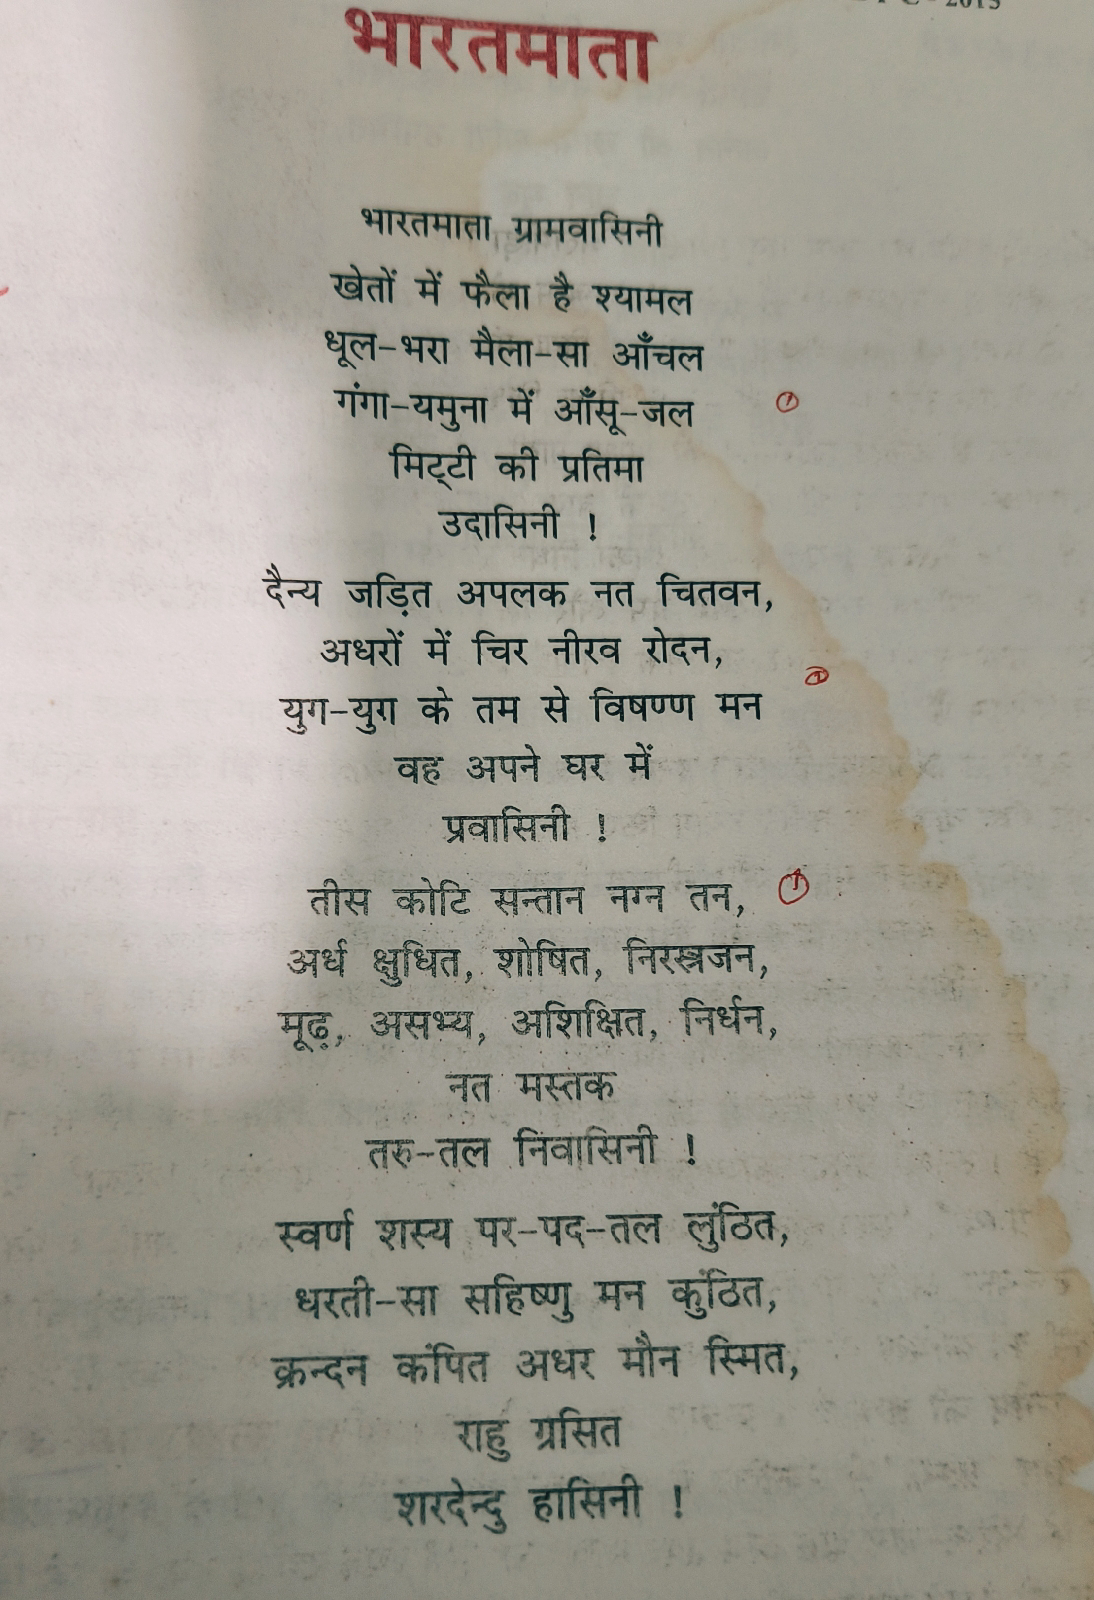 भारतमाता
भारतमाता ग्रामवासिनी
खेतों में फैला है श्यामल
धूल-भरा मैला-सा आँचल
गंगा-यमुना में आँसू-जल
मिट्टी की प्रतिमा
उदासिनी !
दैन्य जड़ित अपलक नत चितवन,
अधरों में चिर नीरव रोदन,
युग-युग के तम से विषण्ण मन
वह अपने घर में
प्रवासिनी !
तीस कोटि सन्तान नग्न तन,
अर्ध क्षुधित, शोषित, निरस्त्रजन,
मूढ़, असभ्य, अशिक्षित, निर्धन,
नत मस्तक
तरु-तल निवासिनी !
स्वर्ण शस्य पर-पद-तल लुंठित,
धरती-सा सहिष्णु मन कुंठित,
क्रन्दन कंपित अधर मौन स्मित,
राहु ग्रसित
शरदेन्दु हासिनी !